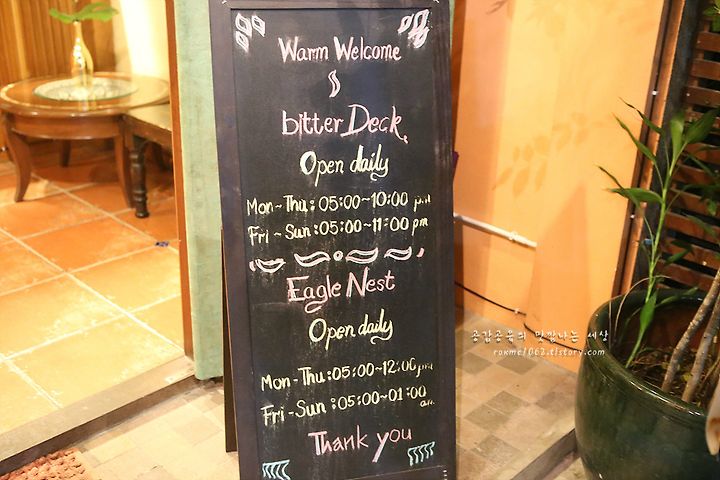 Warm Welcome
bitter Deck,
Open daily
Mon~Thu:05:00~10:00 pm
Fri~Sun:05:00~11:00 pm
Eagle Nest
Open daily
Mon-Thu:05:00~12:00 pm
Fri-Sun:05:00~01:00 am.
Thank you
공감공유의 맛깔나는 세상
rokmc1062.tistory.com